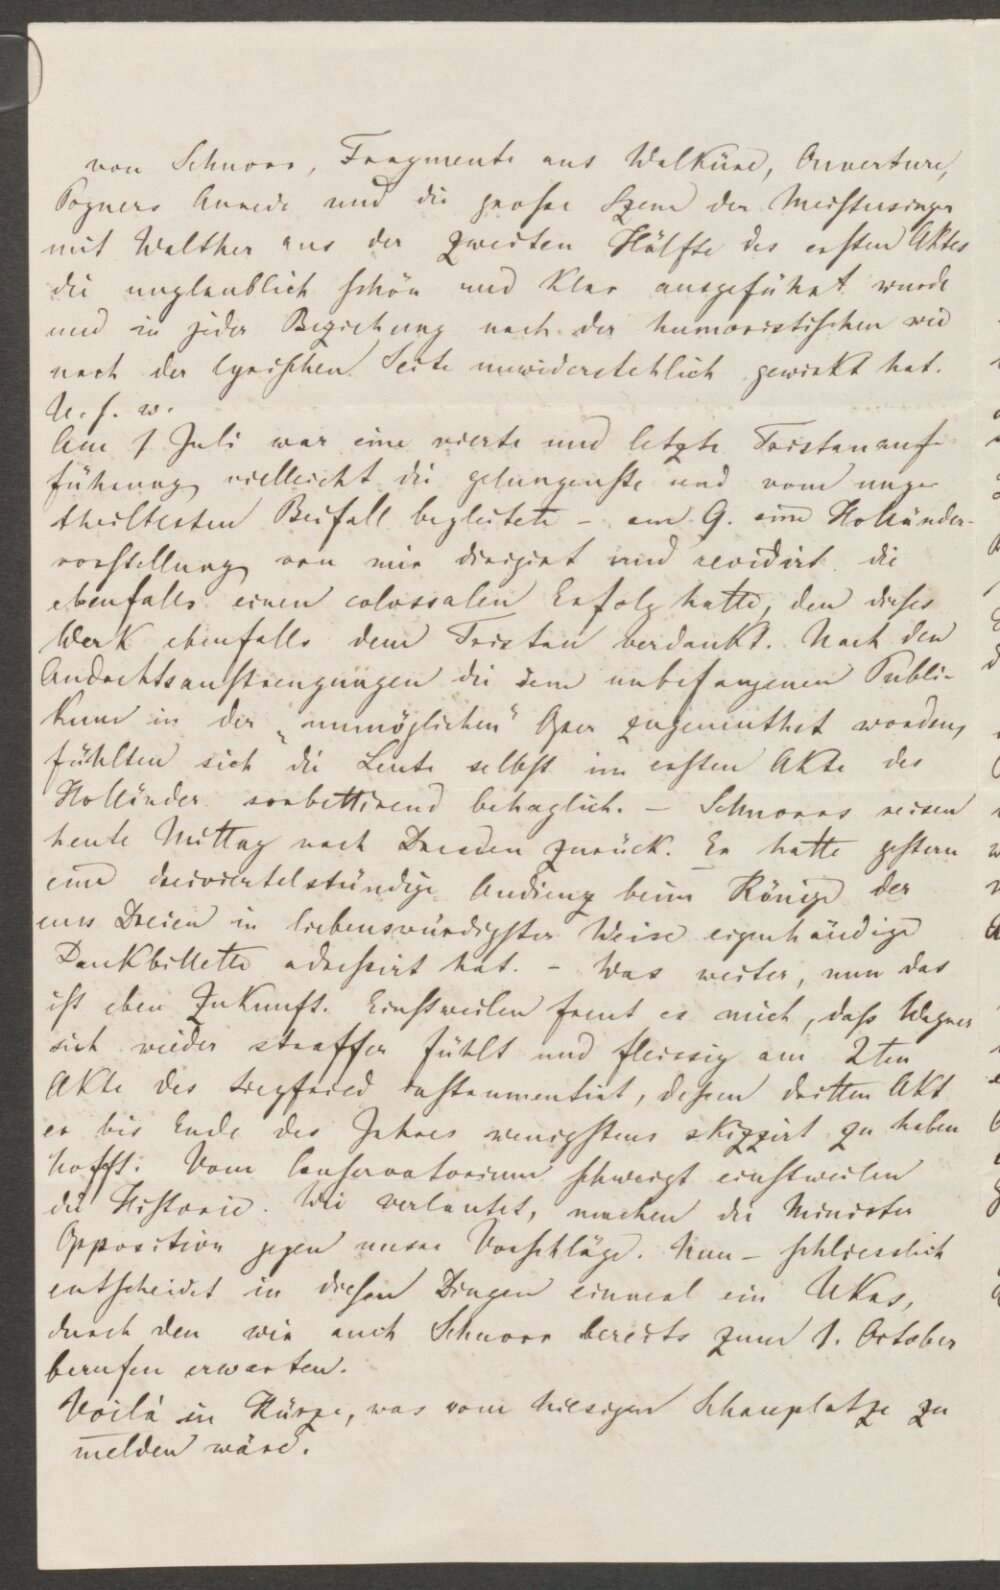 von Schnorr, Fragmente aus Walküre, Ouverture,
Pogners Anrede und die große Szene der Meistersinger
mit Walther aus der zweiten Hälfte des ersten Aktes
die unglaublich schön und klar ausgeführt wurde
und in jeder Beziehung nach der humoristischen wie
nach der lyrischen Seite unwiderstehlich gewirkt hat.
U. s. w.
Am 1 Juli war eine vierte und letzte Tristanauf-
führung vielleicht die gelungenste und vom unge-
theiltesten Beifall begleitete – am 9. eine Holländer-
vorstellung von mir dirigirt und revidirt die
ebenfalls einen colossalen Erfolg hatte, den dieses
Werk ebenfalls dem Tristan verdankt. Nach den
Andachtsanstrengungen die dem unbefangenen Publi-
kum in der „unmöglichen“ Oper zugemuthet worden,
fühlten sich die Leute selbst im ersten Akte des
Holländer sorbettirend behaglich. – Schnorrs reisen
heute Mittag nach Dresden zurück. Er hatte gestern
eine dreiviertelstündige Audienz beim Könige der
uns Dreien in liebenswürdigster Weise eigenhändige
Dankbillette adressirt hat. – Was weiter, nun das
ist eben Zukunft. Einstweilen freut es mich, daß Wagner
sich wieder straffer fühlt und fleissig am 2ten
Akte des Siegfried instrumentirt, dessen dritten Akt
er bis Ende des Jahres wenigstens skizzirt zu haben
hofft. Vom Conservatorium schweigt einstweilen
die Historie. Wie verlautet, machen die Minister
Opposition gegen unsre Vorschläge. Nun – schliesslich
entscheidet in diesen Dingen einmal ein Ukas,
durch den wir auch Schnorr bereits zum 1. October
berufen erwarten.
Voilà in Kürze, was vom hiesigen Schauplatze zu
melden wäre.